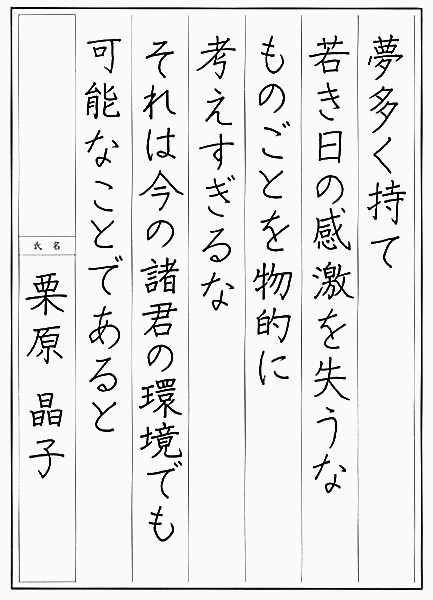 夢多く持て
若き日の感激を失うな
ものごとを物的に
考えすぎるな
それは今の諸君の環境でも
可能なことであると
氏名
栗原 晶子